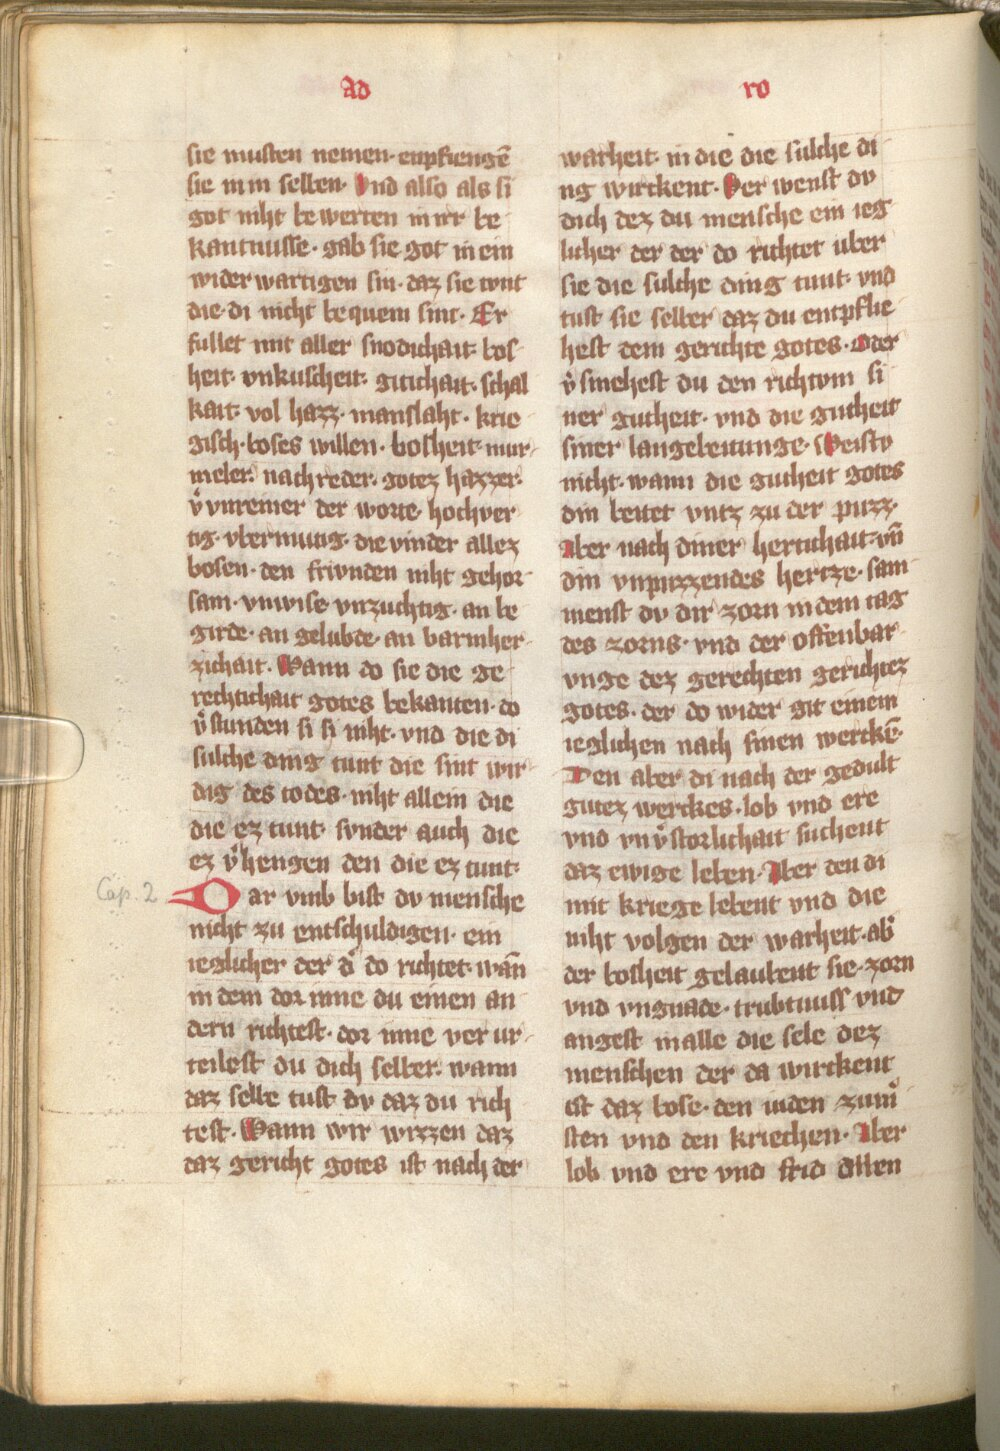 ad
ro
sie musten nemen· enpfiengē
sie in in selben· Und also als si
got niht bewerten in irr be
kantnusse· gab sie got in ein
widerwartigen sin· daz sie tvnt
die· di nicht bequem sint· Er
fullet mit aller snodichait· bos
heit· vnkuscheit· gitichait· schal
kait· vol hazz· manslaht· krie
gisch· boses willen· bosheit· mur
meler· nachreder· gotez hazzer·
v̓vnreiner der worte· hochver
tig· vbermutig· die vinder allez
bosen· den frivnden niht gehor
sam· vnwise vnzuchtig· an be
girde· an gelubde· an barmher
zichait· Wann do sie die ge
rechtichait gotes bekanten· do
v̓stunden si si niht· vnd die di
sulche ding tunt die sint wir
dig des todes· niht allein die
die ez tunt· svnder auch die
ez v̓hengen den die ez tunt·
Cap. 2
Dar vmb bist dv mensche
nicht zu entschuldigen· ein
ieglicher der d̓ do richtet· wan̄
in dem dor inne du einen an
dern richtest· dor inne ver ur
teilest du dich selber· wann
daz selbe tust dv daz du rich
test· Wann wir wizzen daz
daz gericht gotes ist nach der
warheit· in die die sulche di
ng wirckent· Der wenst dv
dich dez du mensche ein ieg
licher der der do richtet uber
sie die sulche ding tunt· vnd
tust sie selber daz du entpflie
hest dem gerichte gotes· Oder
v̓smehest du den richtvm si
ner gutheit· vnd die gutheit
siner langebeitunge· Weistv
nicht· wann die gutheit gotes
din beitet vntz zu der puzz·
Aber nach diner hertichait· vn̄
din vnpuzzendes hertze· sam
menst dv dir zorn in dem tag
des zorns· vnd der offenbar
unge dez gerechten gerichtez
gotes· der do wider git einem
ieglichen nach sinen werckē·
Den aber di nach der gedult
gutez werckes· lob vnd ere
vnd vnv̓storlichait suchent
daz ewige leben· Aber den di
mit kriege lebent vnd die
niht volgen der warheit· ab̓
der bosheit gelaubent sie· zorn
vnd vngnade· trubtnuss vnd
angest in alle die sele dez
menschen der da wirckent
ist daz bose· den iuden zum̓
sten vnd den kriechen· Aber
lob vnd ere vnd frid allen